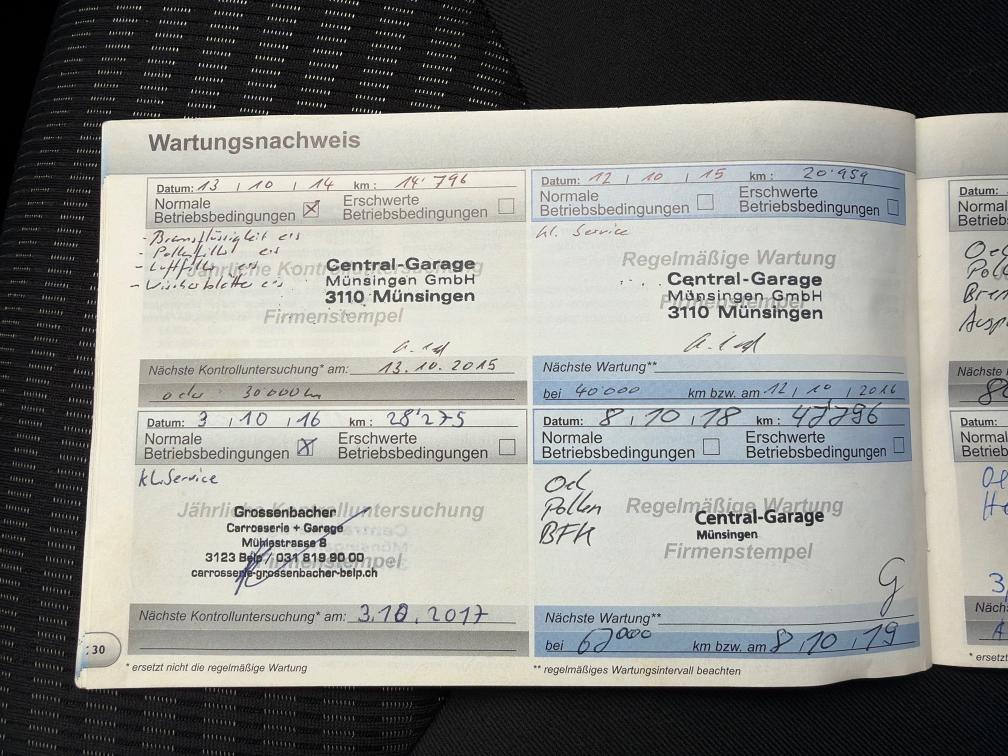 Wartungsnachweis
Datum: 13 / 10 / 14 km: 14'796
Normale
Betriebsbedingungen ☒ Erschwerte
Betriebsbedingungen ☐
- Bremsflüssigkeit ers
- Pollenfilter ers
- Luftfilter ers
- Wischerblätter ers
Jährliche Kontrolluntersuchung
Central-Garage
Münsingen GmbH
3110 Münsingen
Firmenstempel
Nächste Kontrolluntersuchung* am: 13.10.2015
oder 30000km
Datum: 12 / 10 / 15 km: 20'959
Normale
Betriebsbedingungen ☐ Erschwerte
Betriebsbedingungen ☐
kl. Service
Regelmäßige Wartung
Central-Garage
Münsingen GmbH
Firmenstempel
3110 Münsingen
Nächste Wartung**
bei 40'000 km bzw. am 12 / 10 / 2016
Datum: 3 / 10 / 16 km: 28'275
Normale
Betriebsbedingungen ☒ Erschwerte
Betriebsbedingungen ☐
kl. Service
Jährliche Kontrolluntersuchung
Grossenbacher
Carrosserie + Garage
Mühlestrasse 8
3123 Belp / 031 819 90 00
Firmenstempel
carrosserie-grossenbacher-belp.ch
Nächste Kontrolluntersuchung* am: 3.10.2017
Datum: 8 / 10 / 18 km: 47796
Normale
Betriebsbedingungen ☐ Erschwerte
Betriebsbedingungen ☐
Oel
Pollen
BFK
Regelmäßige Wartung
Central-Garage
Münsingen
Firmenstempel
G
Nächste Wartung**
bei 62000 km bzw. am 8 / 10 / 19
30
* ersetzt nicht die regelmäßige Wartung
** regelmäßiges Wartungsintervall beachten
Datum: